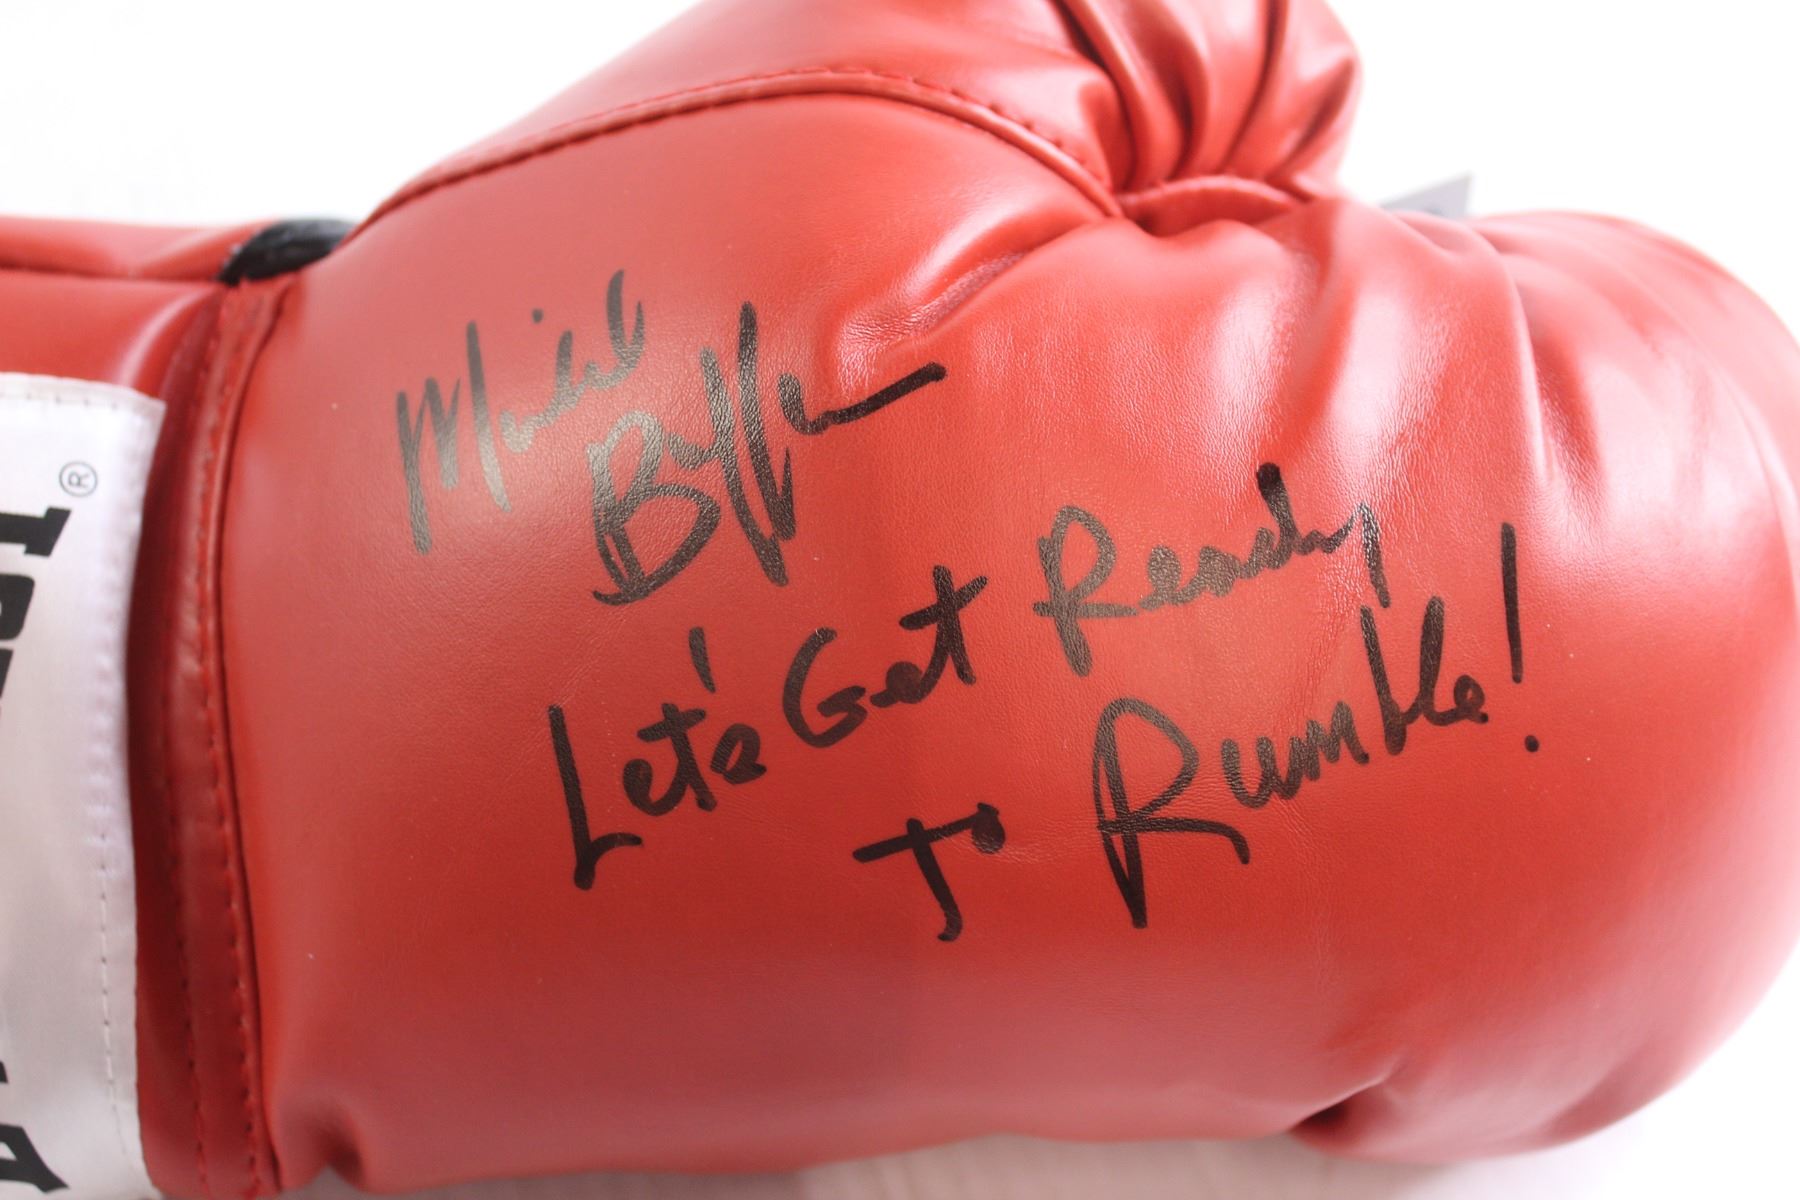 Michael
Buffer
Let's Get Ready
To Rumble!
®